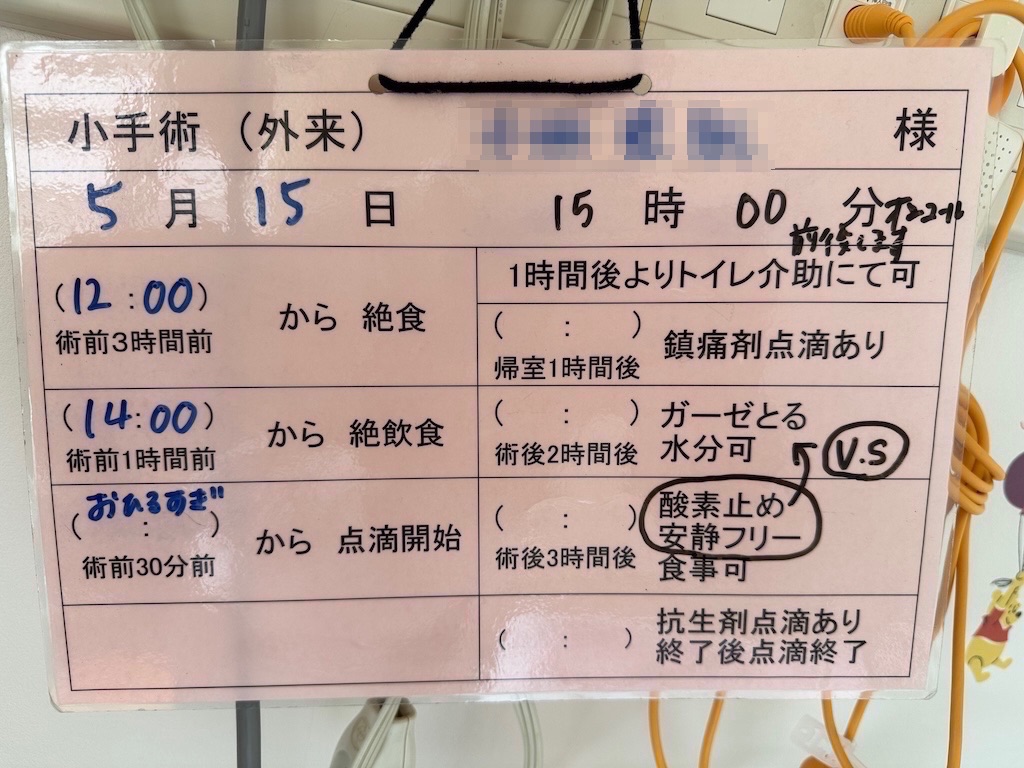 小手術（外来） 様
5月15日 15時00分オンコール
前後します
(12:00) から 絶食
術前3時間前
(14:00) から 絶飲食
術前1時間前
おひるすぎ
( : ) から 点滴開始
術前30分前
1時間後よりトイレ介助にて可
( : ) 鎮痛剤点滴あり
帰室1時間後
( : ) ガーゼとる
術後2時間後 水分可
V.S
( : ) 酸素止め
安静フリー
術後3時間後 食事可
( : ) 抗生剤点滴あり
終了後点滴終了